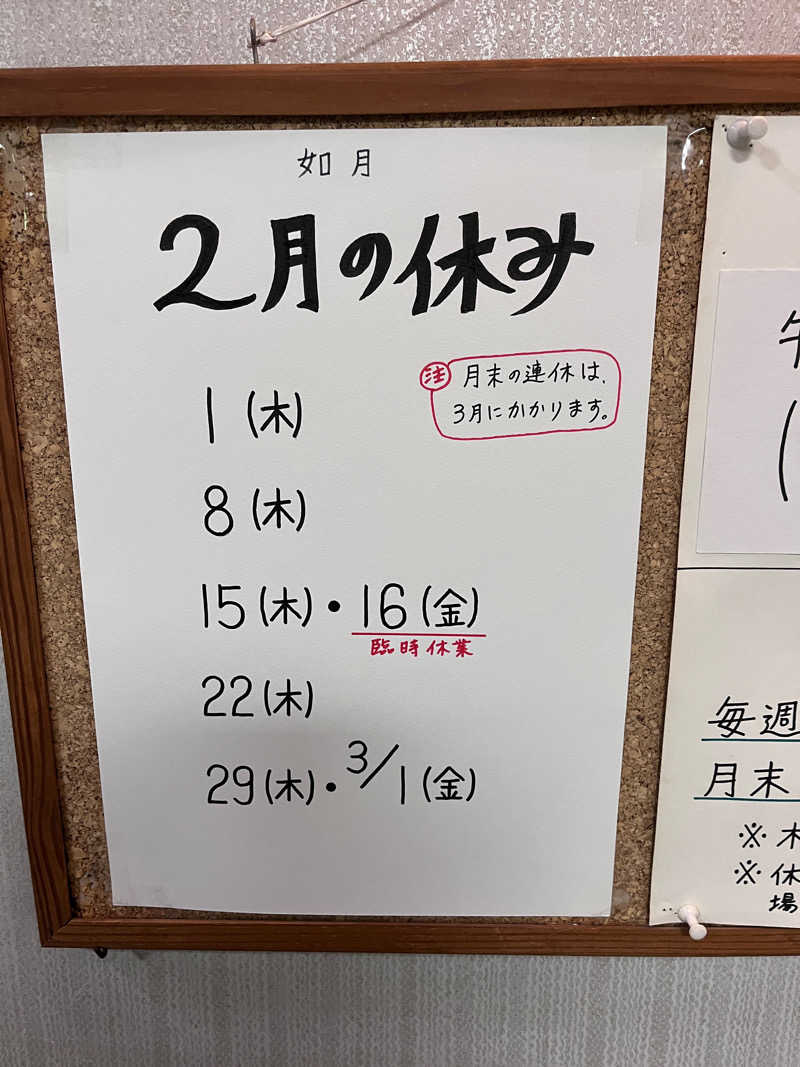 如月
2月の休み
注 月末の連休は、
3月にかかります。
1(木)
8(木)
15(木)・16(金)
臨時休業
22(木)
29(木)・3/1(金)
毎週
月末
※木
※休
場